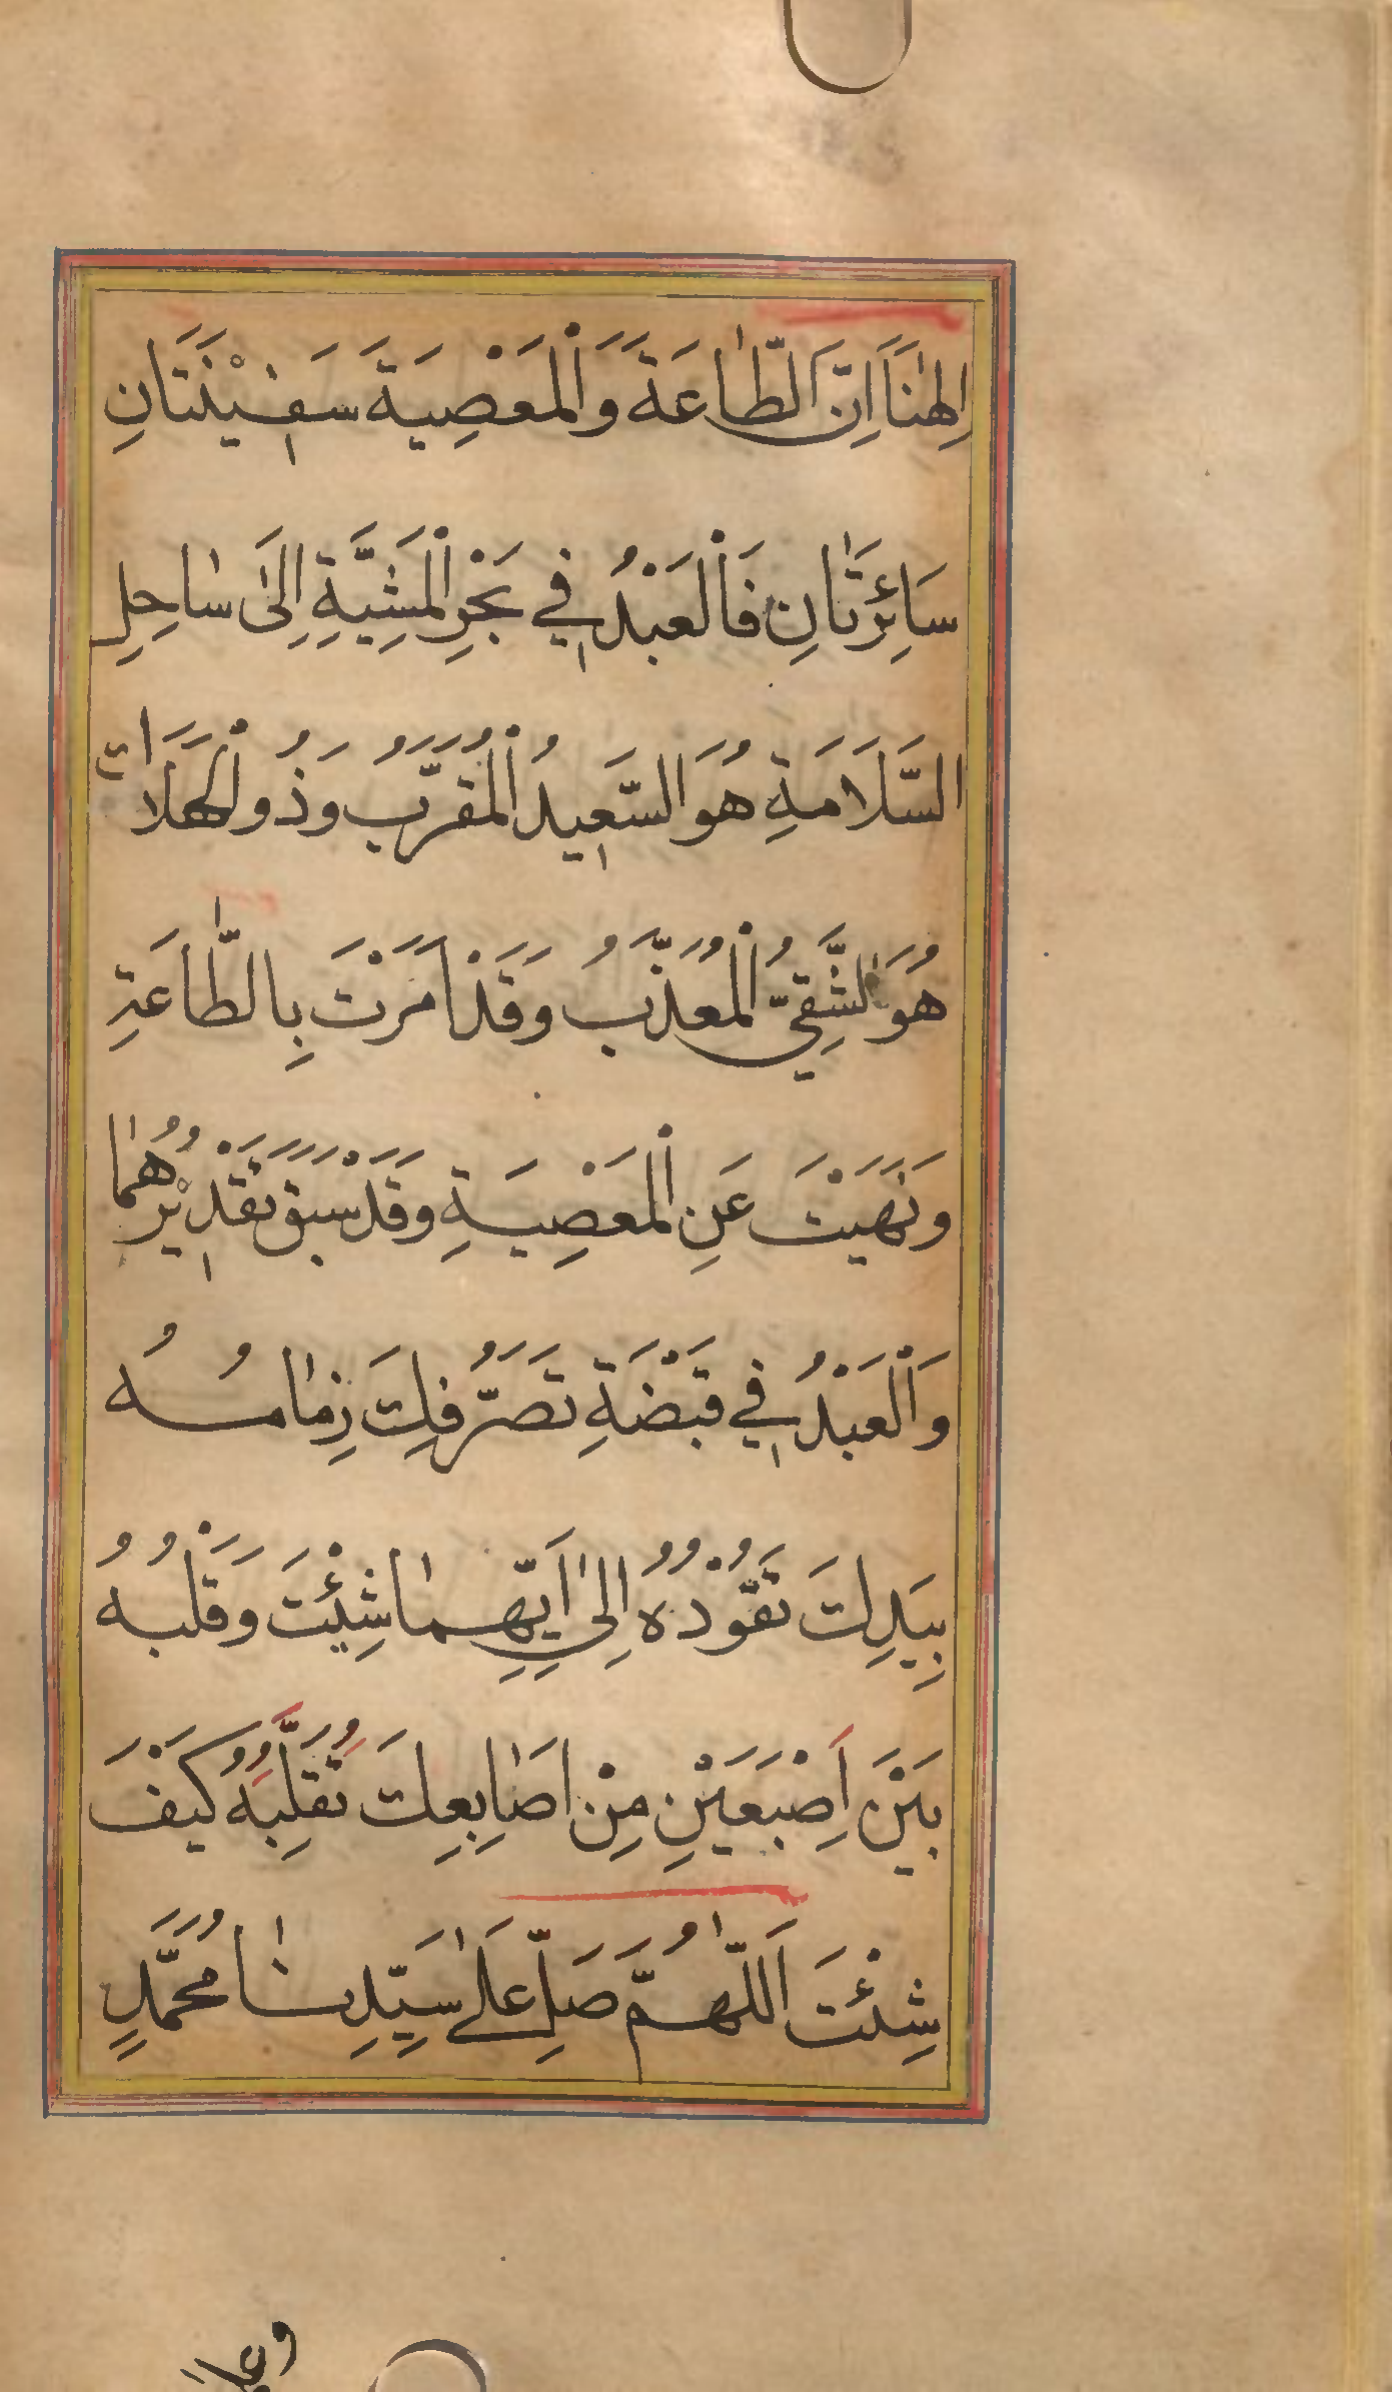 اِلٰهَنَا اِنَّ الطَّاعَةَ وَالْمَعْصِيَةَ سَفِينَتَانِ
سَائِرَتَانِ فَالْعَبْدُ فِي بَحْرِ الْمَشِيَّةِ اِلَى سَاحِلِ
السَّلَامَةِ هُوَ السَّعِيدُ الْمُقَرَّبُ وَذُو الْهَلَاكِ
هُوَ الشَّقِيُّ الْمُعَذَّبُ وَقَدْ اَمَرْتَ بِالطَّاعَةِ
وَنَهَيْتَ عَنِ الْمَعْصِيَةِ وَقَدْ سَبَقَ تَقْدِيْرُهُمَا
وَالْعَبْدُ فِي قَبْضَةِ تَصَرُّفِكَ زِمَامُهُ
بِيَدِكَ تَقُوْدُهُ اِلَى اَيِّهِمَا شِئْتَ وَقَلْبُهُ
بَيْنَ اِصْبَعَيْنِ مِنْ اَصَابِعِكَ تُقَلِّبُهُ كَيْفَ
شِئْتَ اَللّٰهُمَّ صَلِّ عَلٰى سَيِّدِنَا مُحَمَّدٍ
وعلى